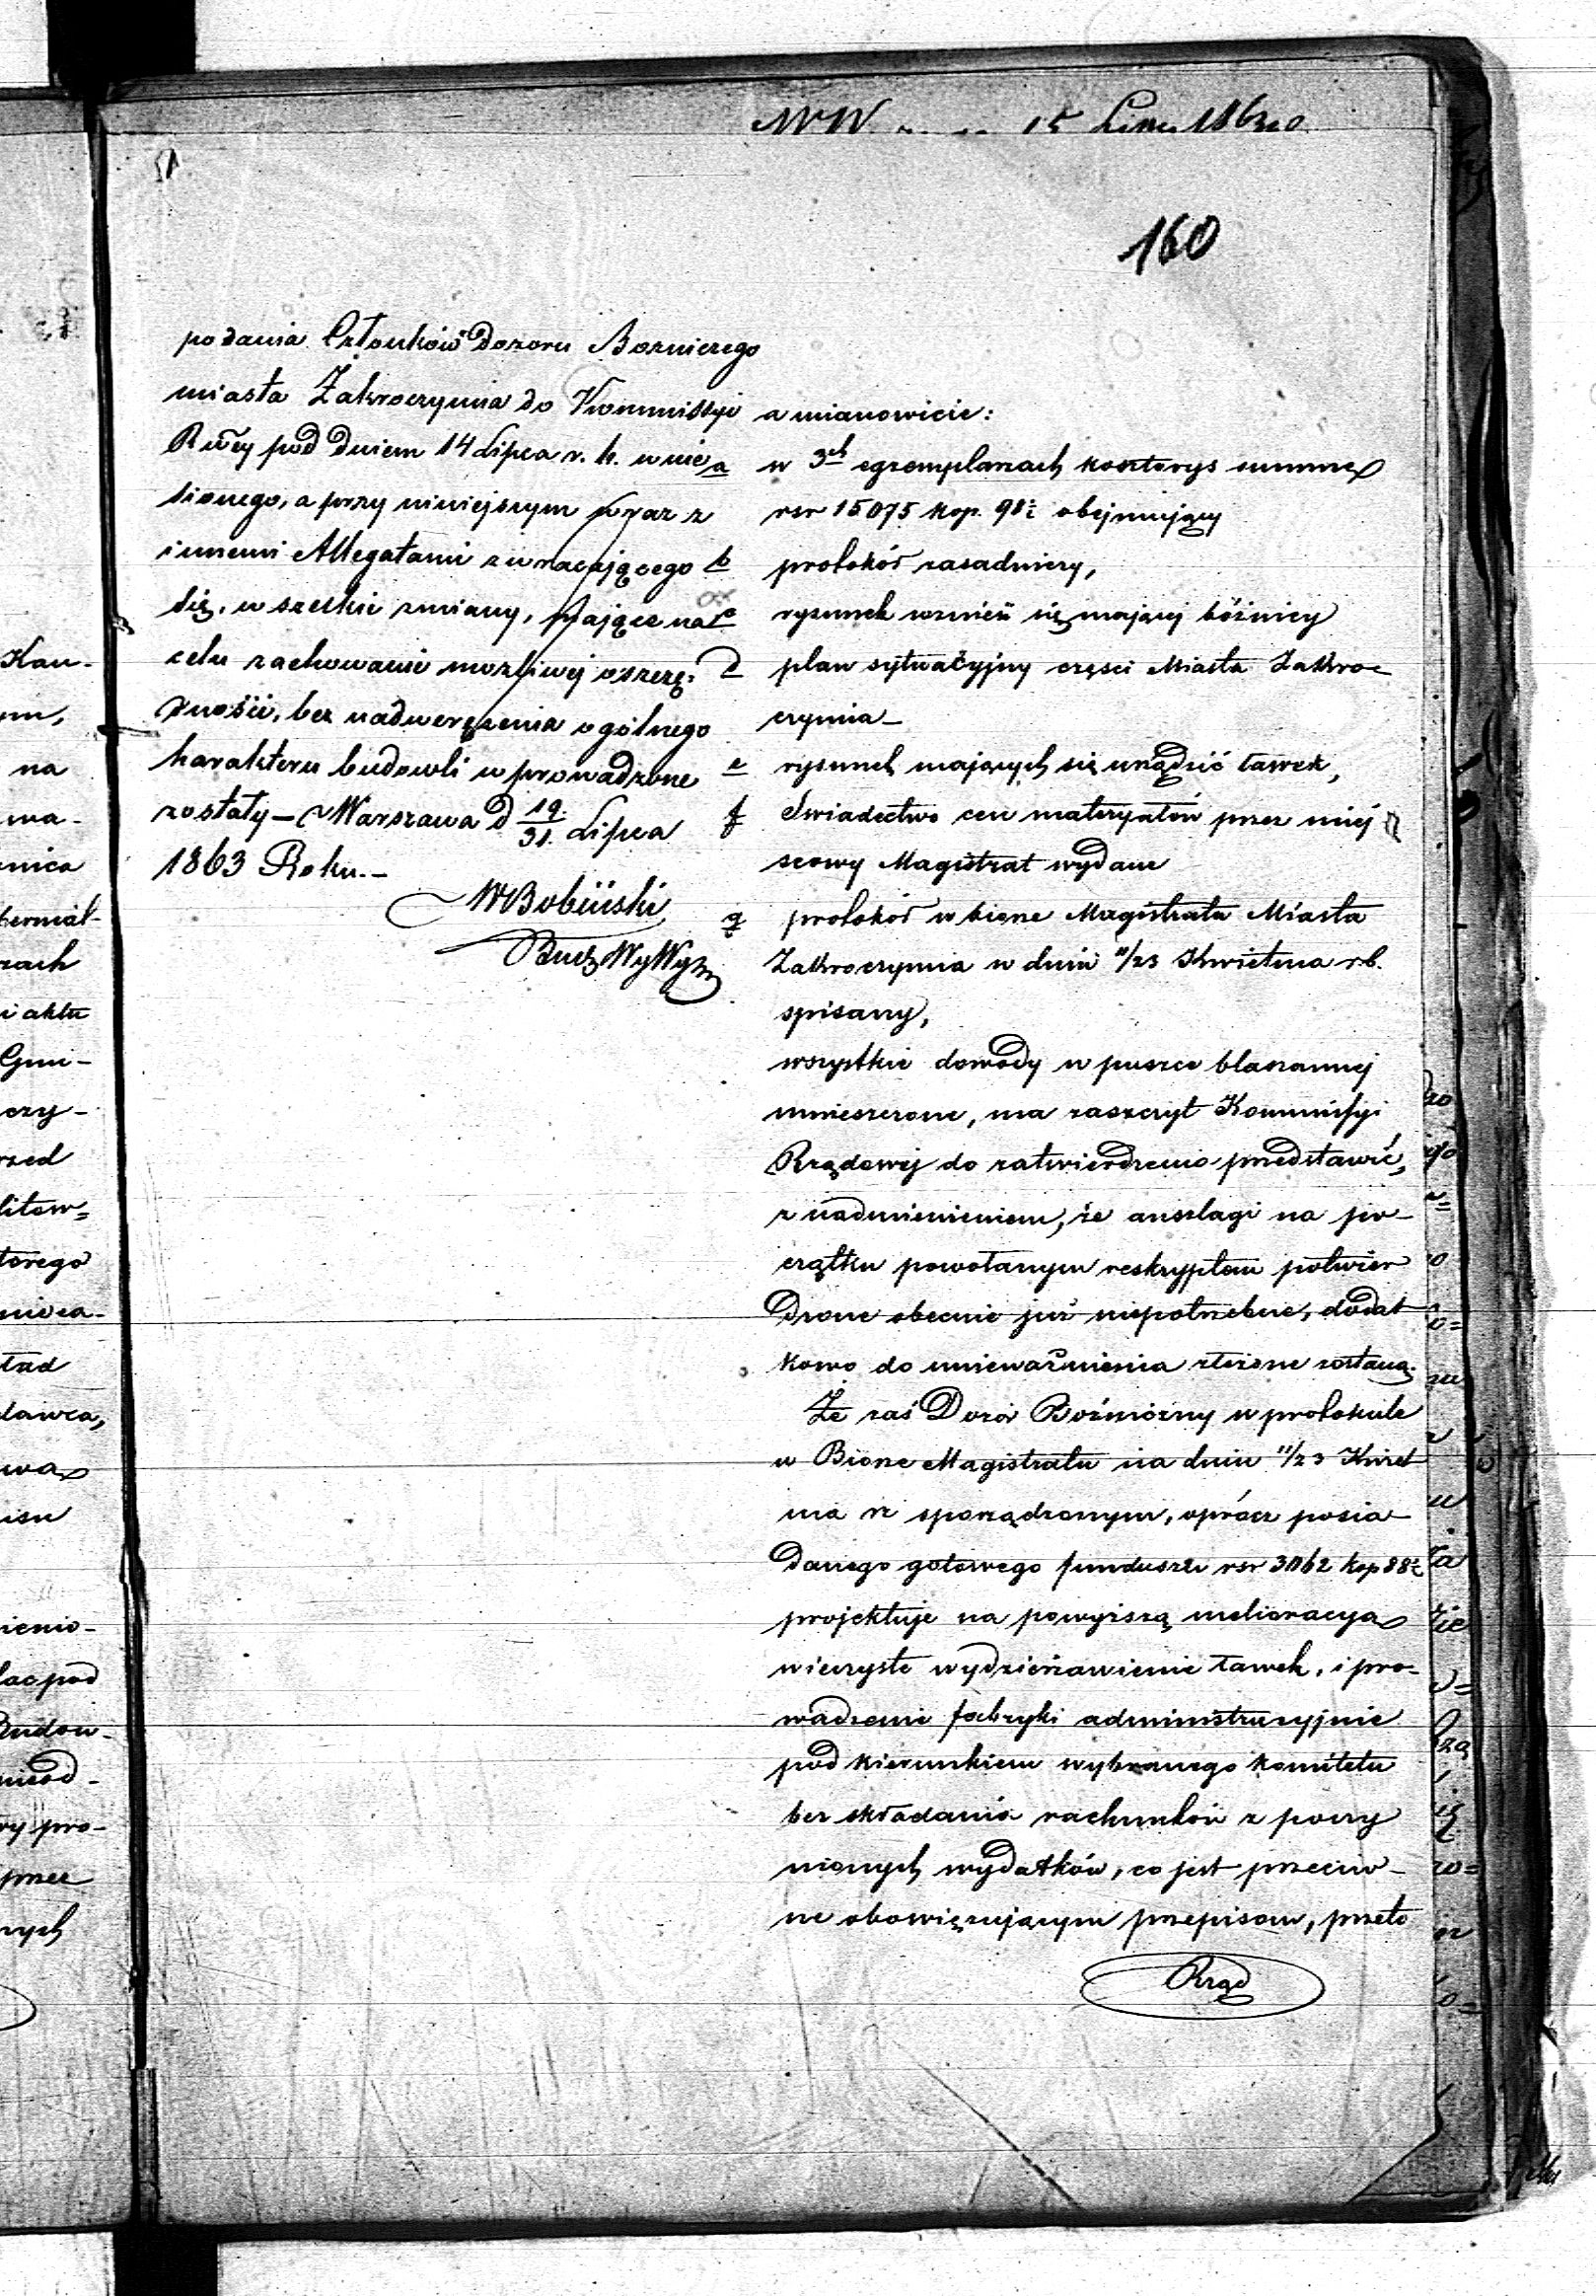 15 1863
160
podania Członków Dozoru Boznicznego
miasta Zakroczymia do Kommissyi
Rwéy pod dniem 14 Lipca r. b. wnie
sionego, a przy niniejszym wraz z
innemi Allegatami zwracającego
się, wszelkie zmiany, mające na
celu zachowanie możliwej oszczę-
dności, bez nadwerężenia ogólnego
harakteru budowli wprowadzone
zostały — Warszawa d 19/31. Lipca
1863 Roku. —
WBobiński
a mianowicie:
a w 3ch egzemplarzach kosztorys summę
rsr 15075 kop. 98½ obejmujący
b protokół zasadniczy,
c rysunek wznieść się mającej bóżnicy
d plan sytuacyjny części Miasta Zakro-
czymia —
e rysunek mających się urządzić ławek,
f Świadectwo cen materyałów przez miej
scowy Magistrat wydane
g protokół w biórze Magistratu Miasta
Zakroczymia w dniu 11/23 Kwietnia r.b.
spisany,
wszystkie dowody w puszce blaszannej
umieszczone, ma zaszczyt Kommissyi
Rządowej do zatwierdzenia przedstawić,
z nadmienieniem, że anszlagi na po-
czątku powołanym reskryptem potwier
dzone obecnie już niepotrzebne, dodat
kowo do unieważnienia złożone zostaną.
Że zaś Dozór Bóżniczny w protokule
w Biórze Magistratu na dniu 11/23 Kwiet
nia r. sporządzonym, oprócz posia-
danego gotowego funduszu rsr 3062 kop 88½
projektuje na powyższą melioracyą
wieczyste wydzierżawienie ławek, i pro-
wadzenie fabryki administracyjnie
pod kierunkiem wybranego komitetu
bez składania rachunków z poczy
nionych wydatków, co jest przeciw-
ne obowiązującym przepisom, przeto
Rząd